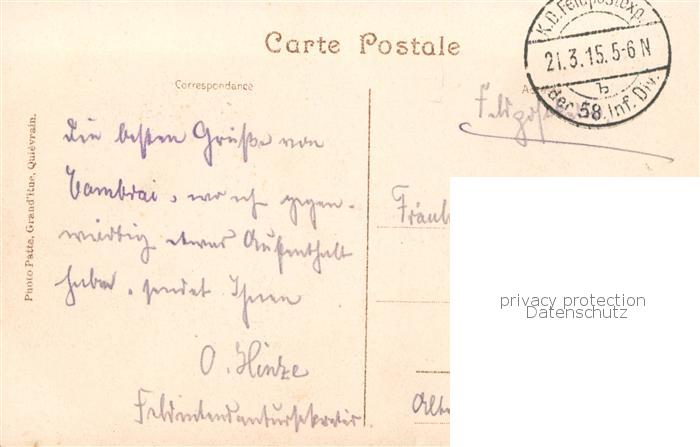 Carte Postale
K.D. Feldpostexp.
21.3.15. 5-6 N
b
der 58. Inf. Div.
Correspondance
Feldpost
Die besten Grüße von
Cambrai, wo ich gegen-
wärtig etwas Aufenthalt
habe, sendet Ihnen
O. Hinze
Feldintendantursekretär
Photo Patte, Grand'Rue, Quiévrain.
privacy protection
Datenschutz